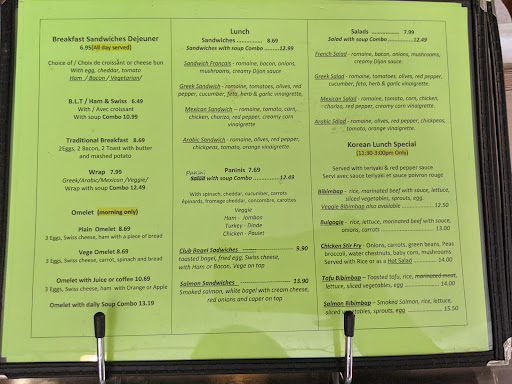 Breakfast Sandwiches Dejeuner
6.95(All day served)
Choice of / Choix de croissant or cheese bun
With egg, cheddar, tomato
Ham / Bacon / Vegetarian/
B.L.T / Ham & Swiss 6.49
With / Avec croissant
With soup Combo 10.99
Traditional Breakfast 8.69
2Eggs, 2 Bacon, 2 Toast with butter
and mashed potato
Wrap 7.95
Greek/Arabic/Mexican /Veggie/
Wrap with soup Combo 12.49
Omelet (morning only)
Plain Omelet 8.69
3 Eggs, Swiss cheese, ham with a piece of bread
Vege Omelet 8.69
3 Eggs, Swiss cheese, carrot, spinach and bread
Omelet with Juice or coffee 10.69
3 Eggs, Swiss cheese, ham with Orange or Apple
Omelet with daily Soup Combo 13.19
Lunch
Sandwiches ............... 8.69
Sandwiches with soup Combo ....12.99
Sandwich Français - romaine, bacon, onions,
mushrooms, creamy Dijon sauce
Greek Sandwich - romaine, tomatoes, olives, red
pepper, cucumber, feta, herb & garlic vinaigrette,
Mexican Sandwich - romaine, tomato, corn,
chicken, chorizo, red pepper, creamy corn
vinaigrette
Arabic Sandwich - romaine, olives, red pepper,
chickpeas, tomato, orange vinaigrette
Paninis 7.69
Salad with soup Combo ............12.49
With spinach, cheddar, cucumber, carrots
épinards, fromage cheddar, concombre, carottes
Veggie
Ham - Jambon
Turkey - Dinde
Chicken - Poulet
Club Bagel Sadwiches ------ --------------- 9.90
toasted bagel, fried egg, Swiss cheese,
with Ham or Bacon, Vege on top
Salmon Sandwiches ------------------- 13.90
Smoked salmon, white bagel with cream cheese,
red onions and caper on top
Salads ............... 7.99
Salad with soup Combo ............12.49
French Salad - romaine, bacon, onions, mushrooms,
creamy Dijon sauce
Greek Salad - romaine, tomatoes, olives, red pepper,
cucumber, feta, herb & garlic vinaigrette,
Mexican Salad - romaine, tomato, corn, chicken,
chorizo, red pepper, creamy corn vinaigrette
Arabic Salad - romaine, olives, red pepper, chickpeas,
tomato, orange vinaigrette.
Korean Lunch Special
(11:30-3:00pm Only)
Served with teriyaki & red pepper sauce
Servi avec sauce teriyaki et sauce poivron rouge
Bibimbap - rice, marinated beef with sauce, lettuce,
sliced vegetables, sprouts, egg.
Veggie Bibimbap also available ............. 12.50
Bulgogie - rice, lettuce, marinated beef with sauce,
onions, carrots ............. 13.00
Chicken Stir Fry - Onions, carrots, green beans, Peas
broccoli, water chestnuts, baby corn, mushrooms
Served with Rice or as a Hot Salad ........... 14.00
Tofu Bibimbap - Toasted tofu, rice, marinated meat,
lettuce, sliced vegetables, egg ........... 14.00
Salmon Bibimbap - Smoked Salmon, rice, lettuce,
sliced vegetables, sprouts, egg ........... 15.50